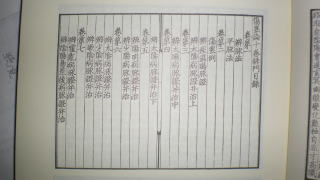 卷第一
辨脉法
平脉法
卷第二
傷寒例
辨痓濕暍脉證
辨太陽病脉證并治上
卷第三
辨太陽病脉證并治中
卷第四
辨太陽病脉證并治下
卷第五
辨陽明病脉證并治
辨少陽病脉證并治
卷第六
辨太陰病脉證并治
辨少陰病脉證并治
辨厥陰病脉證并治
卷第七
辨霍亂病脉證并治
辨陰陽易差後病脉證并治